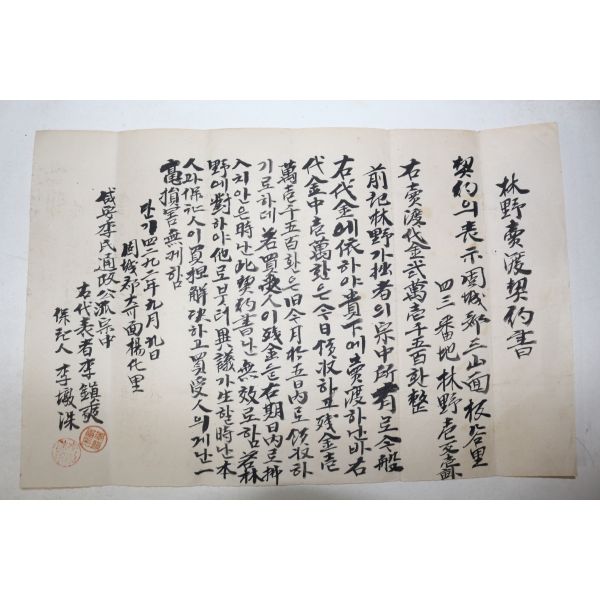 林野賣渡契約書
契約의表示固城郡三山面板谷里
四三番地林野壱反歩
右賣渡代金弐萬壱千五百환整
前記林野가拙者의宗中所有로今般
右代金에依하야貴下에賣渡하난바右
代金中壱萬환은今日領收하고残金壱
萬壱千五百환은旧今月拾五日內로領収하
기로하데若買受人이残金을右期日內로押
入치안은時난此契約書난無效로함若林
野에對하야他로붓터異議가生할時난本
人과保証人이負担解决하고買受人의게난一
毫損害無케함
단기四二九二年九月九日
固城郡大可面楊化里
咸安李氏通政公派宗中
右代表者李鎭奭
保証人 李墩洙